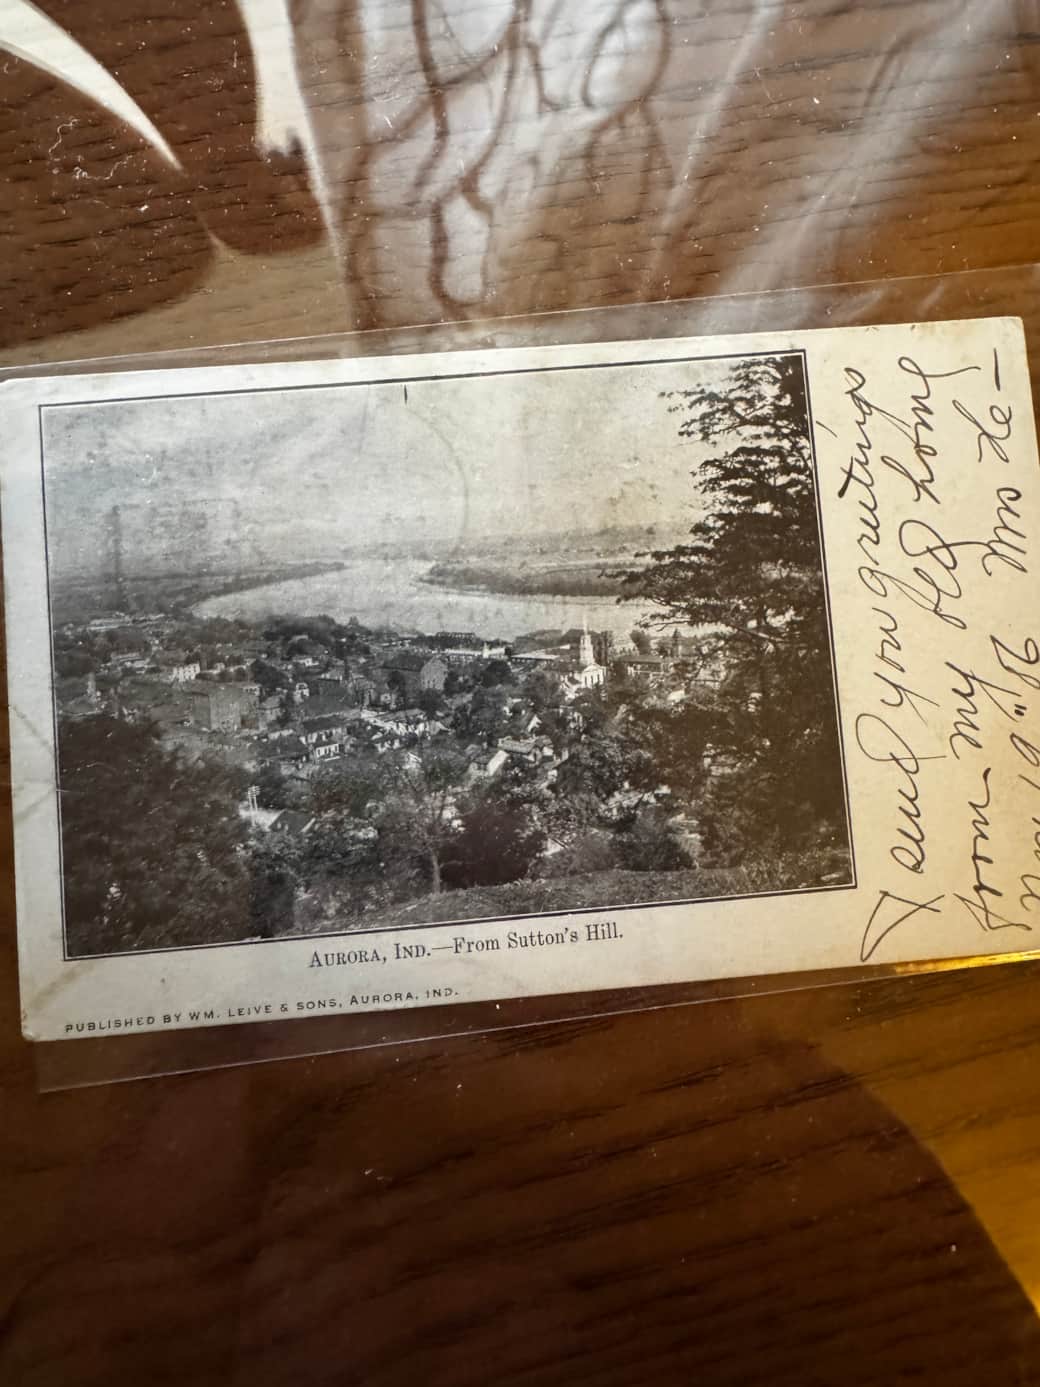 AURORA, IND.—From Sutton's Hill.
PUBLISHED BY WM. LEIVE & SONS, AURORA, IND.
I send you greetings
from my old home